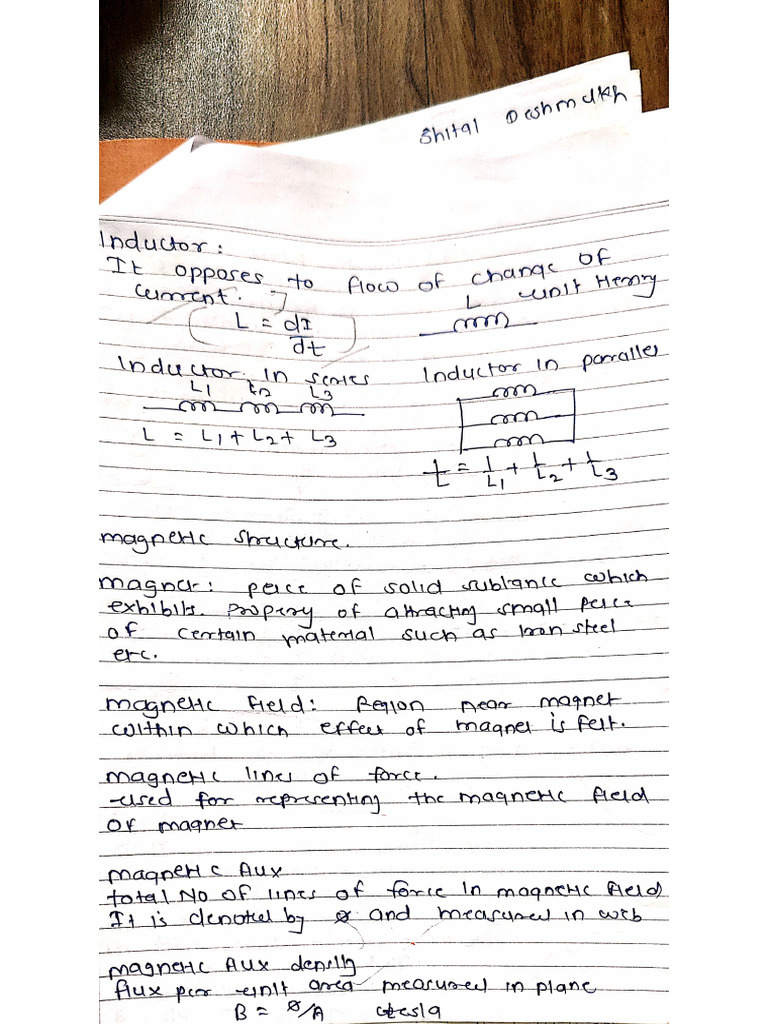 Shital Deshmukh
Inductor:
It opposes to flow of change of
current.
L unit Henry
L = dI
dt
Inductor in series
Inductor in parralles
L1 L2 L3
L = L1 + L2 + L3
1/L = 1/L1 + 1/L2 + 1/L3
magnetic structure.
magnet: peice of solid subtance which
exhibits. Property of attracting small peice
of certain material such as Iron steel
etc.
magnetic field: Region near magnet
within which effect of magnet is felt.
magnetic lines of force.
used for representing the magnetic field
of magnet
magnetic flux
total No of lines of force in magnetic field
It is denoted by ø and measured in web
magnetic flux density
flux per unit area measured in plane
B = ø/A tesla